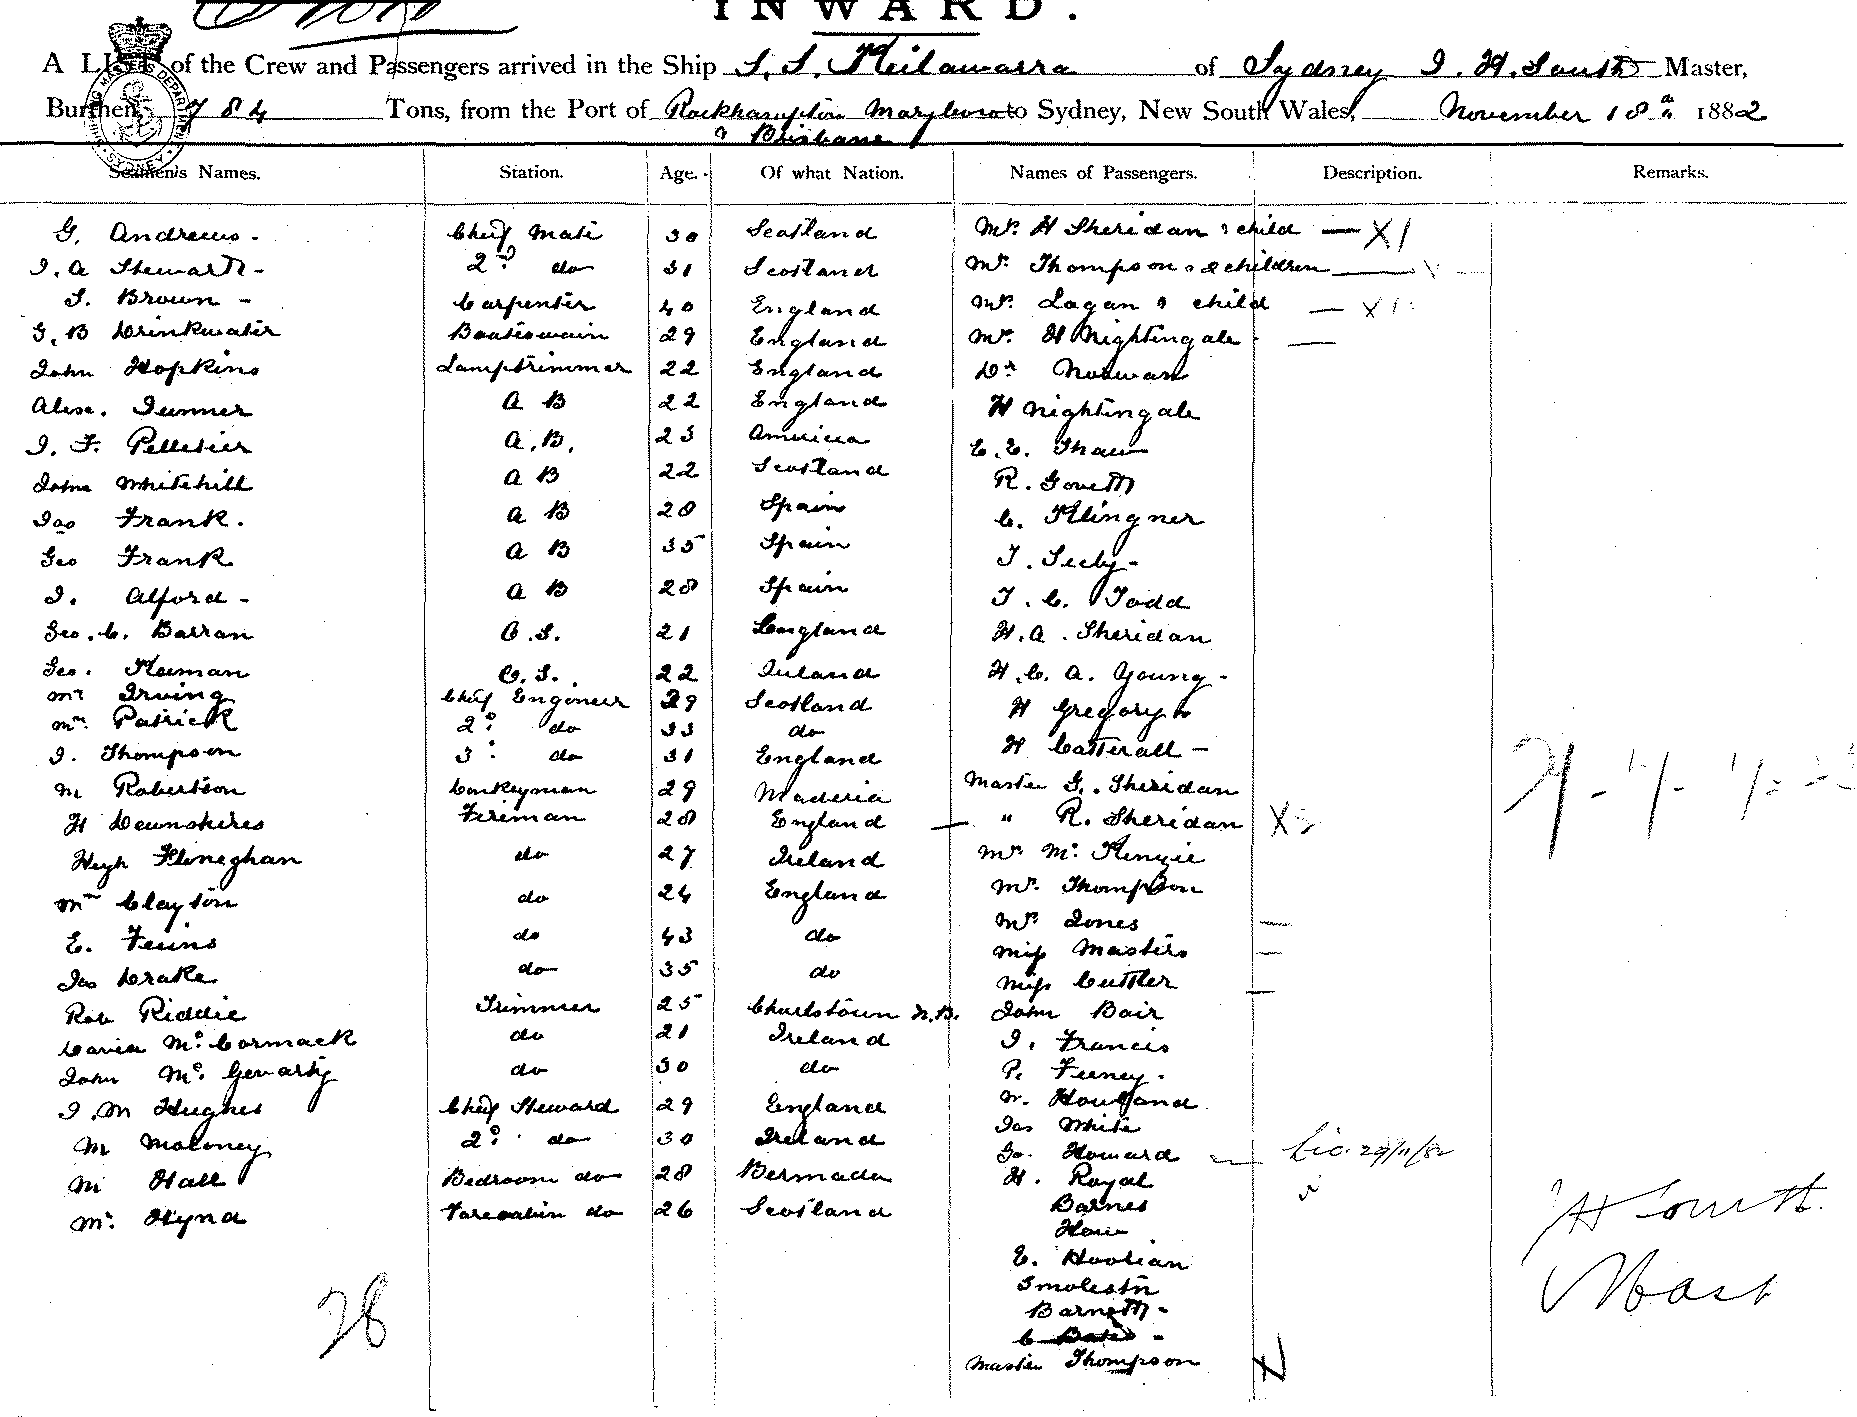 INWARD.
A LIST of the Crew and Passengers arrived in the Ship S.S. Keilawarra of Sydney J. H. South Master,
Burthen, 784 Tons, from the Port of Rockhampton Maryboro to Sydney, New South Wales, November 18th 1882
& Brisbane
Seamen's Names. Station. Age. Of what Nation. Names of Passengers. Description. Remarks.
G. Andrews - Chief Mate 30 Scotland Mrs H Sheridan & child — X1
J. A Stewart - 2nd do 31 Scotland Mrs Thompson & 2 children —
S. Brown - Carpenter 40 England Mrs Lagan & child — X1
G. B Drinkwater Boatswain 29 England Mrs H Nightingale —
John Hopkins Lamptrimmer 22 England Dr
Alex. A B 22 England H Nightingale
J. F. Pelletier A.B. 23 America C. E. Shaw
John Whitehill A B 22 Scotland R. Govett
Jas Frank. A B 28 Spain C. Klingner
Geo Frank A B 35 Spain T. Seely -
J. Alford - A B 28 Spain T. C. Todd
Geo. C. Barran O.S. 21 England H. A. Sheridan
Geo. Keenan O.S. 22 Ireland H. C. A. Young -
Mr Irving Chief Engineer 39 Scotland H Gregory
Wm Patrick 2nd do 33 do H Catterall -
J. Thompson 3rd do 31 England Master G. Sheridan
M Robertson Donkeyman 29 Maderia " R. Sheridan X
H Devonshires Fireman 28 England Mrs McKenzie
Hugh do 27 Ireland Mr. Thompson
Wm Clayton do 24 England Mrs Jones —
E. do 43 do Miss Masters —
Jas Drake do 35 do Miss Cuttler —
Rob Riddie Trimmer 25 Charlstown N.B. John Bair
David McCormack do 21 Ireland J. Francis
John McGenarty do 30 do P. Feeney -
J. M Hughes Chief Steward 29 England W. Hourgand
M Moloney 2nd do 30 Ireland Jas White
M Hall Bedroom do 28 Bermada Geo. Howard — 29/11/82
Mc. Hynd Forecabin do 26 Scotland H. Royal
Barnes
How
E. Hoolian
Barnett -
C Bates -
Master Thompson
28
H South
Mast